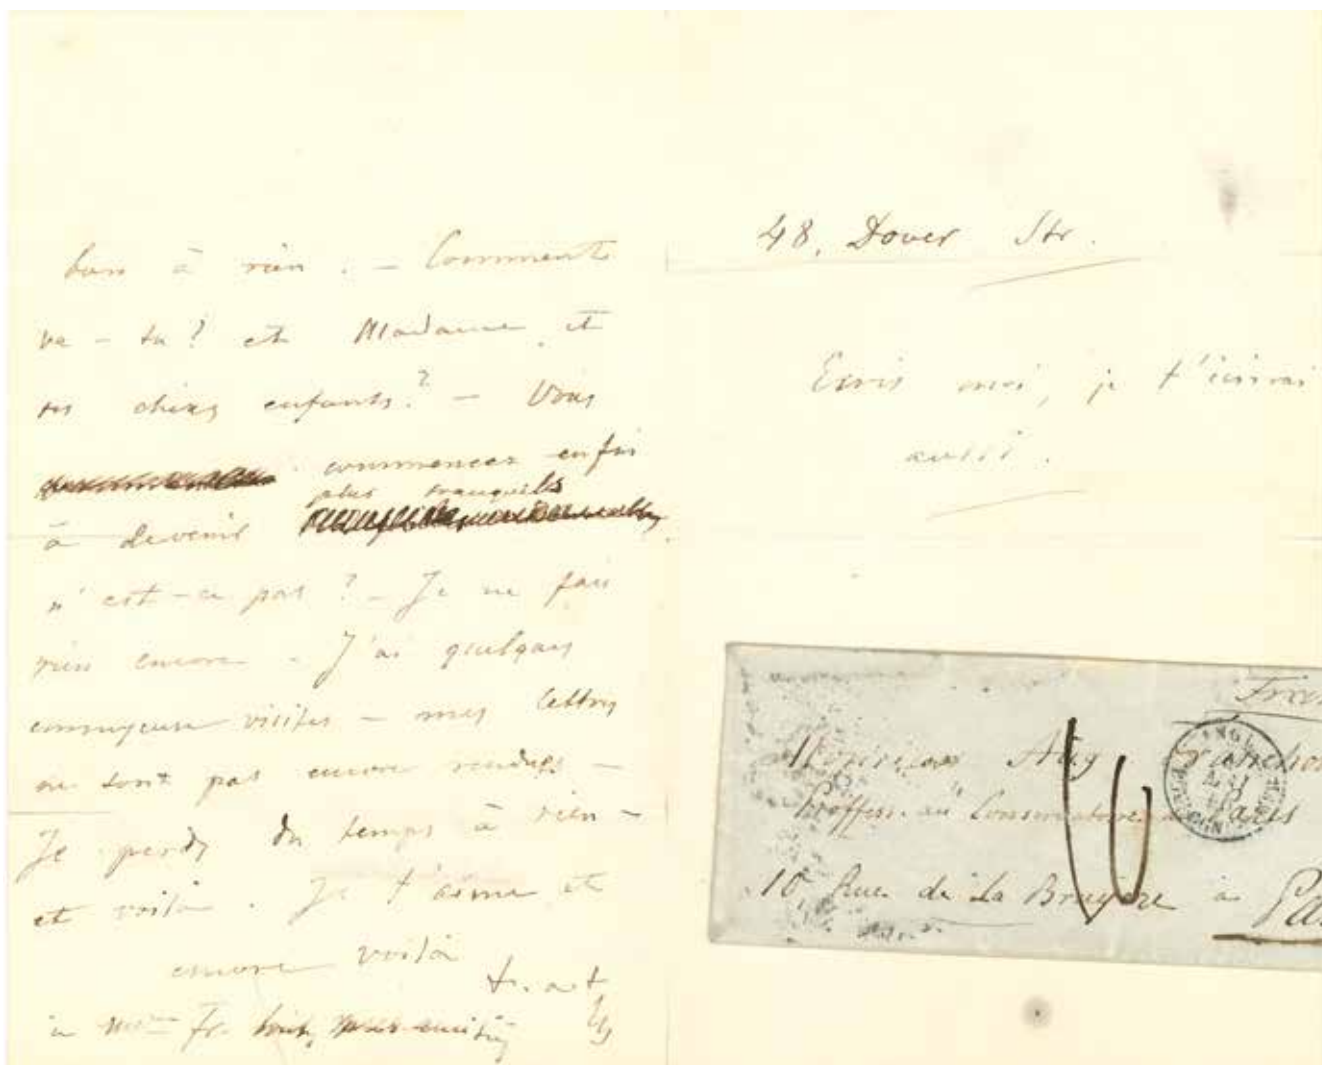 bon à rien. — Comment
va-tu? et Madame et
tes chers enfants? — Vous
commencez enfin
plus tranquiles
à devenir
n'est-ce pas? — Je ne fais
rien encore — J'ai quelques
ennuyeuse visites — mes lettres
ne sont pas encore rendues —
Je perds du temps à rien —
et voilà. Je t'aime et
encore voilà
à Mme Fr.
48, Dover Str.
Ecris moi, je t'écrirai
aussi.
Monsieur Aug. Franchom
Professr au Conservatoire de Paris
10, Rue de La Bruyère à Pa